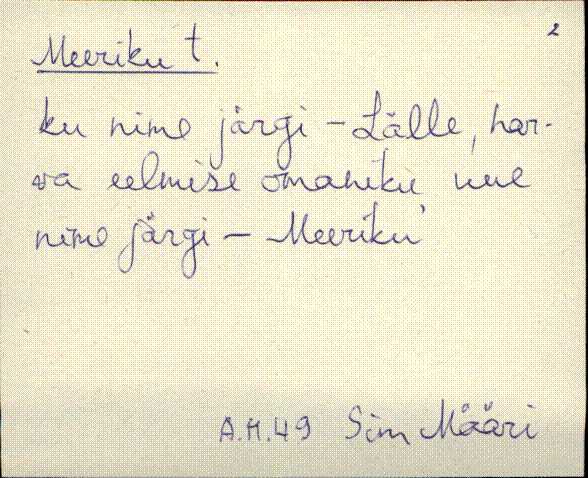 2
Meeriku t.
ku nime järgi - Lälle, har-
va eelmise omaniku uue
nime järgi - Meeriku
A.H.49 Sim Määri